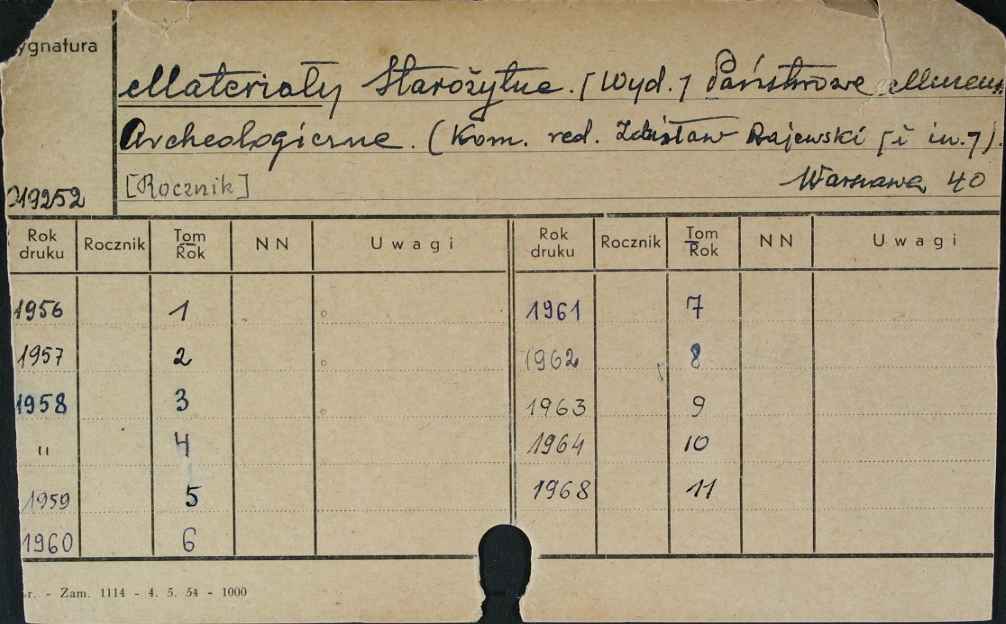 ygnatura
Materiały Starożytne. [Wyd.] Państwowe Muzeum
Archeologiczne. (Kom. red. Zdzisław Rajewski [i in.]).
[Rocznik] Warszawa 40
19252
Rok druku Rocznik Tom Rok NN Uwagi Rok druku Rocznik Tom Rok NN Uwagi
1956 1 1961 7
1957 2 1962 8
1958 3 1963 9
" 4 1964 10
1959 5 1968 11
1960 6
r. - Zam. 1114 - 4. 5. 54 - 1000